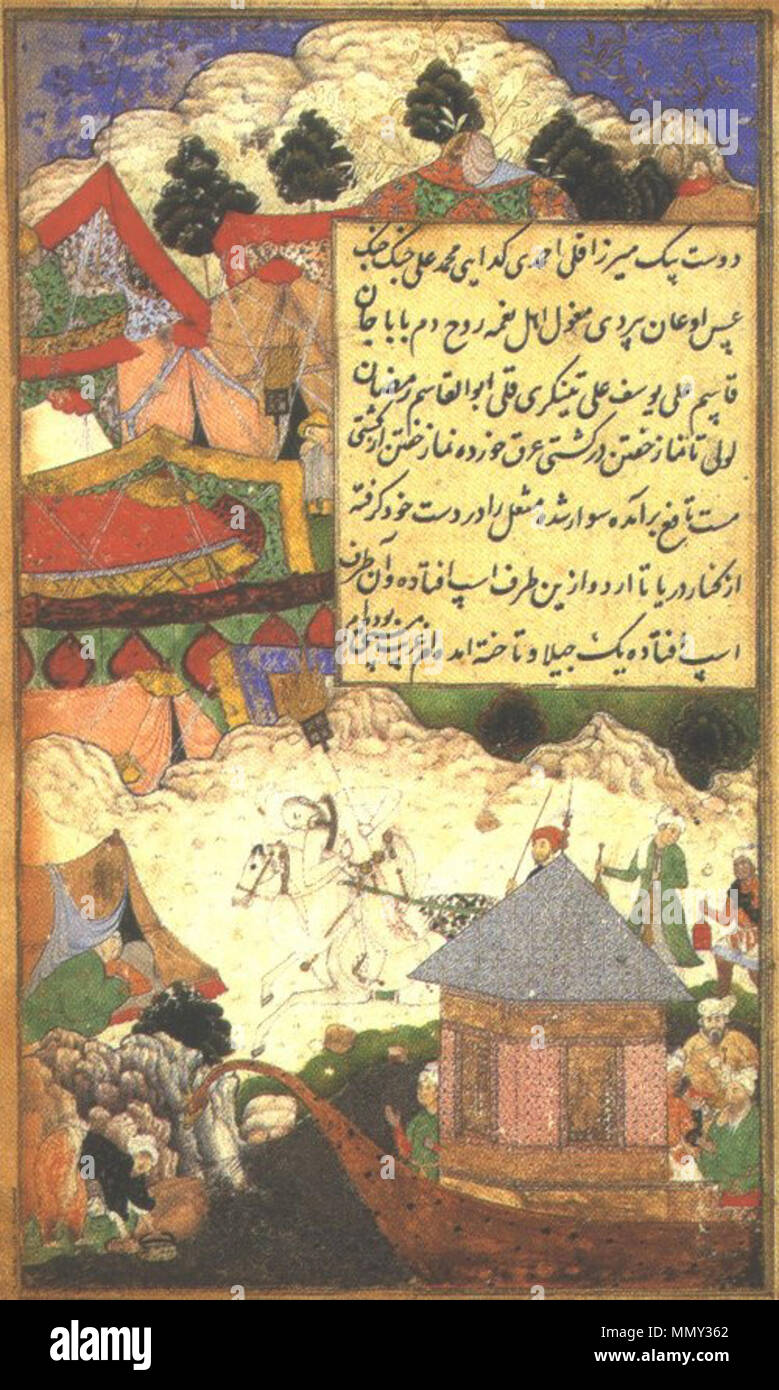 دوست بیک میرزا قلی احمدی کدایی محمد علی جنک جنک
عسس اوغان بردی مغول اهل نغمه روح دم بابا جان
قاسم علی یوسف علی تینکری قلی ابوالقاسم رمضان
لولی تا نماز خفتن در کشتی عرق خورده نماز خفتن از کشتی
مست برآمده سوار شده مشعل را در دست خود کرفته
از کنار دریا تا اردو ازین طرف اسپ افتاده و آن طرف
اسپ افتاده یک جیلاو تاخته آمده ام غریب مستی بودم
alamy
Image ID: MMY362
www.alamy.com